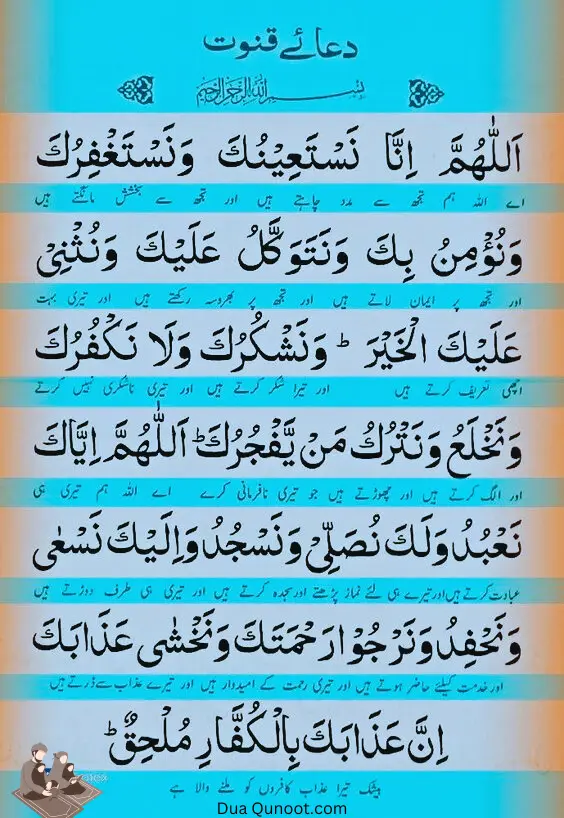 دعائے قنوت
بسم الله الرحمن الرحيم
اَللّٰهُمَّ اِنَّا نَسْتَعِيْنُكَ وَنَسْتَغْفِرُكَ
اے اللہ ہم تجھ سے مدد چاہتے ہیں اور تجھ سے بخشش مانگتے ہیں
وَنُؤْمِنُ بِكَ وَنَتَوَكَّلُ عَلَيْكَ وَنُثْنِيْ
اور تجھ پر ایمان لاتے ہیں اور تجھ پر بھروسہ رکھتے ہیں اور تیری بہت
عَلَيْكَ الْخَيْرَ ؕ وَنَشْكُرُكَ وَلَا نَكْفُرُكَ
اچھی تعریف کرتے ہیں اور تیرا شکر کرتے ہیں اور تیری ناشکری نہیں کرتے
وَنَخْلَعُ وَنَتْرُكُ مَنْ يَّفْجُرُكَ ؕ اَللّٰهُمَّ اِيَّاكَ
اور الگ کرتے ہیں اور چھوڑتے ہیں جو تیری نافرمانی کرے اے اللہ ہم تیری ہی
نَعْبُدُ وَلَكَ نُصَلِّيْ وَنَسْجُدُ وَاِلَيْكَ نَسْعٰى
عبادت کرتے ہیں اور تیرے ہی لئے نماز پڑھتے اور سجدہ کرتے ہیں اور تیری ہی طرف دوڑتے ہیں
وَنَحْفِدُ وَنَرْجُوْا رَحْمَتَكَ وَنَخْشٰى عَذَابَكَ
اور خدمت کیلئے حاضر ہوتے ہیں اور تیری رحمت کے امیدوار ہیں اور تیرے عذاب سے ڈرتے ہیں
اِنَّ عَذَابَكَ بِالْكُفَّارِ مُلْحِقٌ ؕ
بیشک تیرا عذاب کافروں کو ملنے والا ہے
Dua Qunoot.com